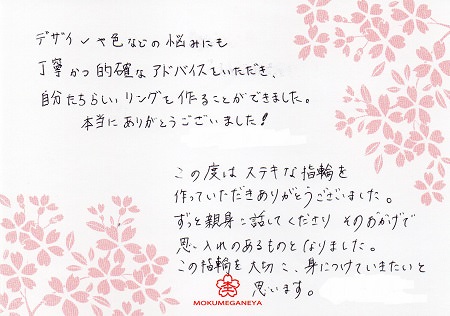 デザインや色などの悩みにも
丁寧かつ的確なアドバイスをいただき、
自分たちらしいリングを作ることができました。
本当にありがとうございました!
この度はステキな指輪を
作っていただきありがとうございました。
ずっと親身に話してくださり そのおかげで
思い入れのあるものとなりました。
この指輪を大切に、身につけていきたいと
思います。
MOKUMEGANEYA